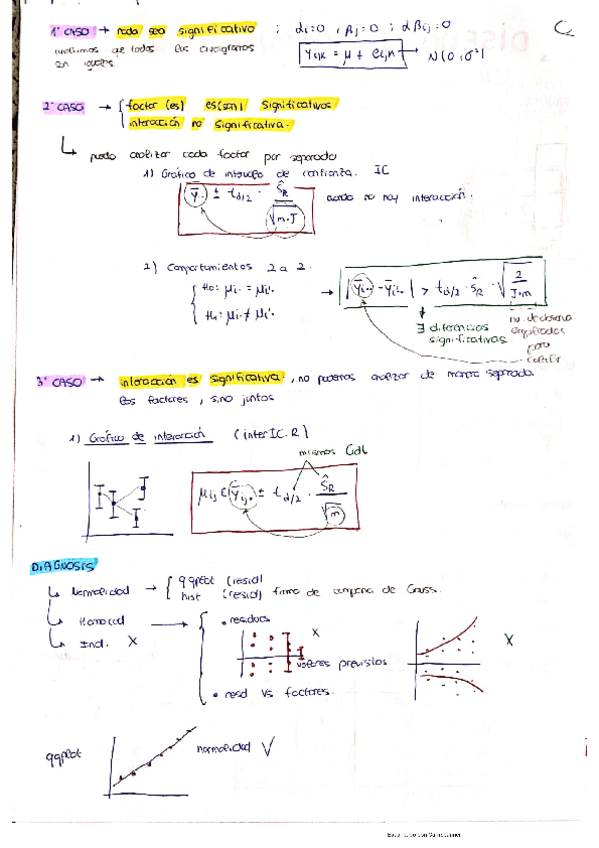 1º CASO → nada sea significativo ; αi=0 , βj=0 ; αβij=0
que todos los
son iguales
Yijk = μ + eijk → N(0,σ²)
2º CASO → { factor(es) es(son) significativos
interacción no significativa.
↳ puedo analizar cada factor por separado
1) Gráfico de intervalo de confianza. IC
ȳi.. ± tα/2 · ŜR / √m·J cuando no hay interacción.
2) Comportamientos 2 a 2.
{ H0: μi. = μi'.
H1: μi. ≠ μi'.
→ |ȳi.. - ȳi'..| > tα/2 · ŜR · √2/J·m
∃ diferencias significativas
empleados
para
3º CASO → interacción es significativa, no podemos analizar de manera separada
los factores, sino juntos
1) Gráfico de interacción (interIC.R)
mismos Gdl
μij ∈ ȳij. ± tα/2 · ŜR / √m
DIAGNOSIS
↳ Normalidad → { qqplot (resid)
hist (resid) forma de campana de Gauss.
↳ Homoced → { • residuos
↳ Ind. X
X
X
valores previstos
• resid vs factores.
qqplot
normalidad √